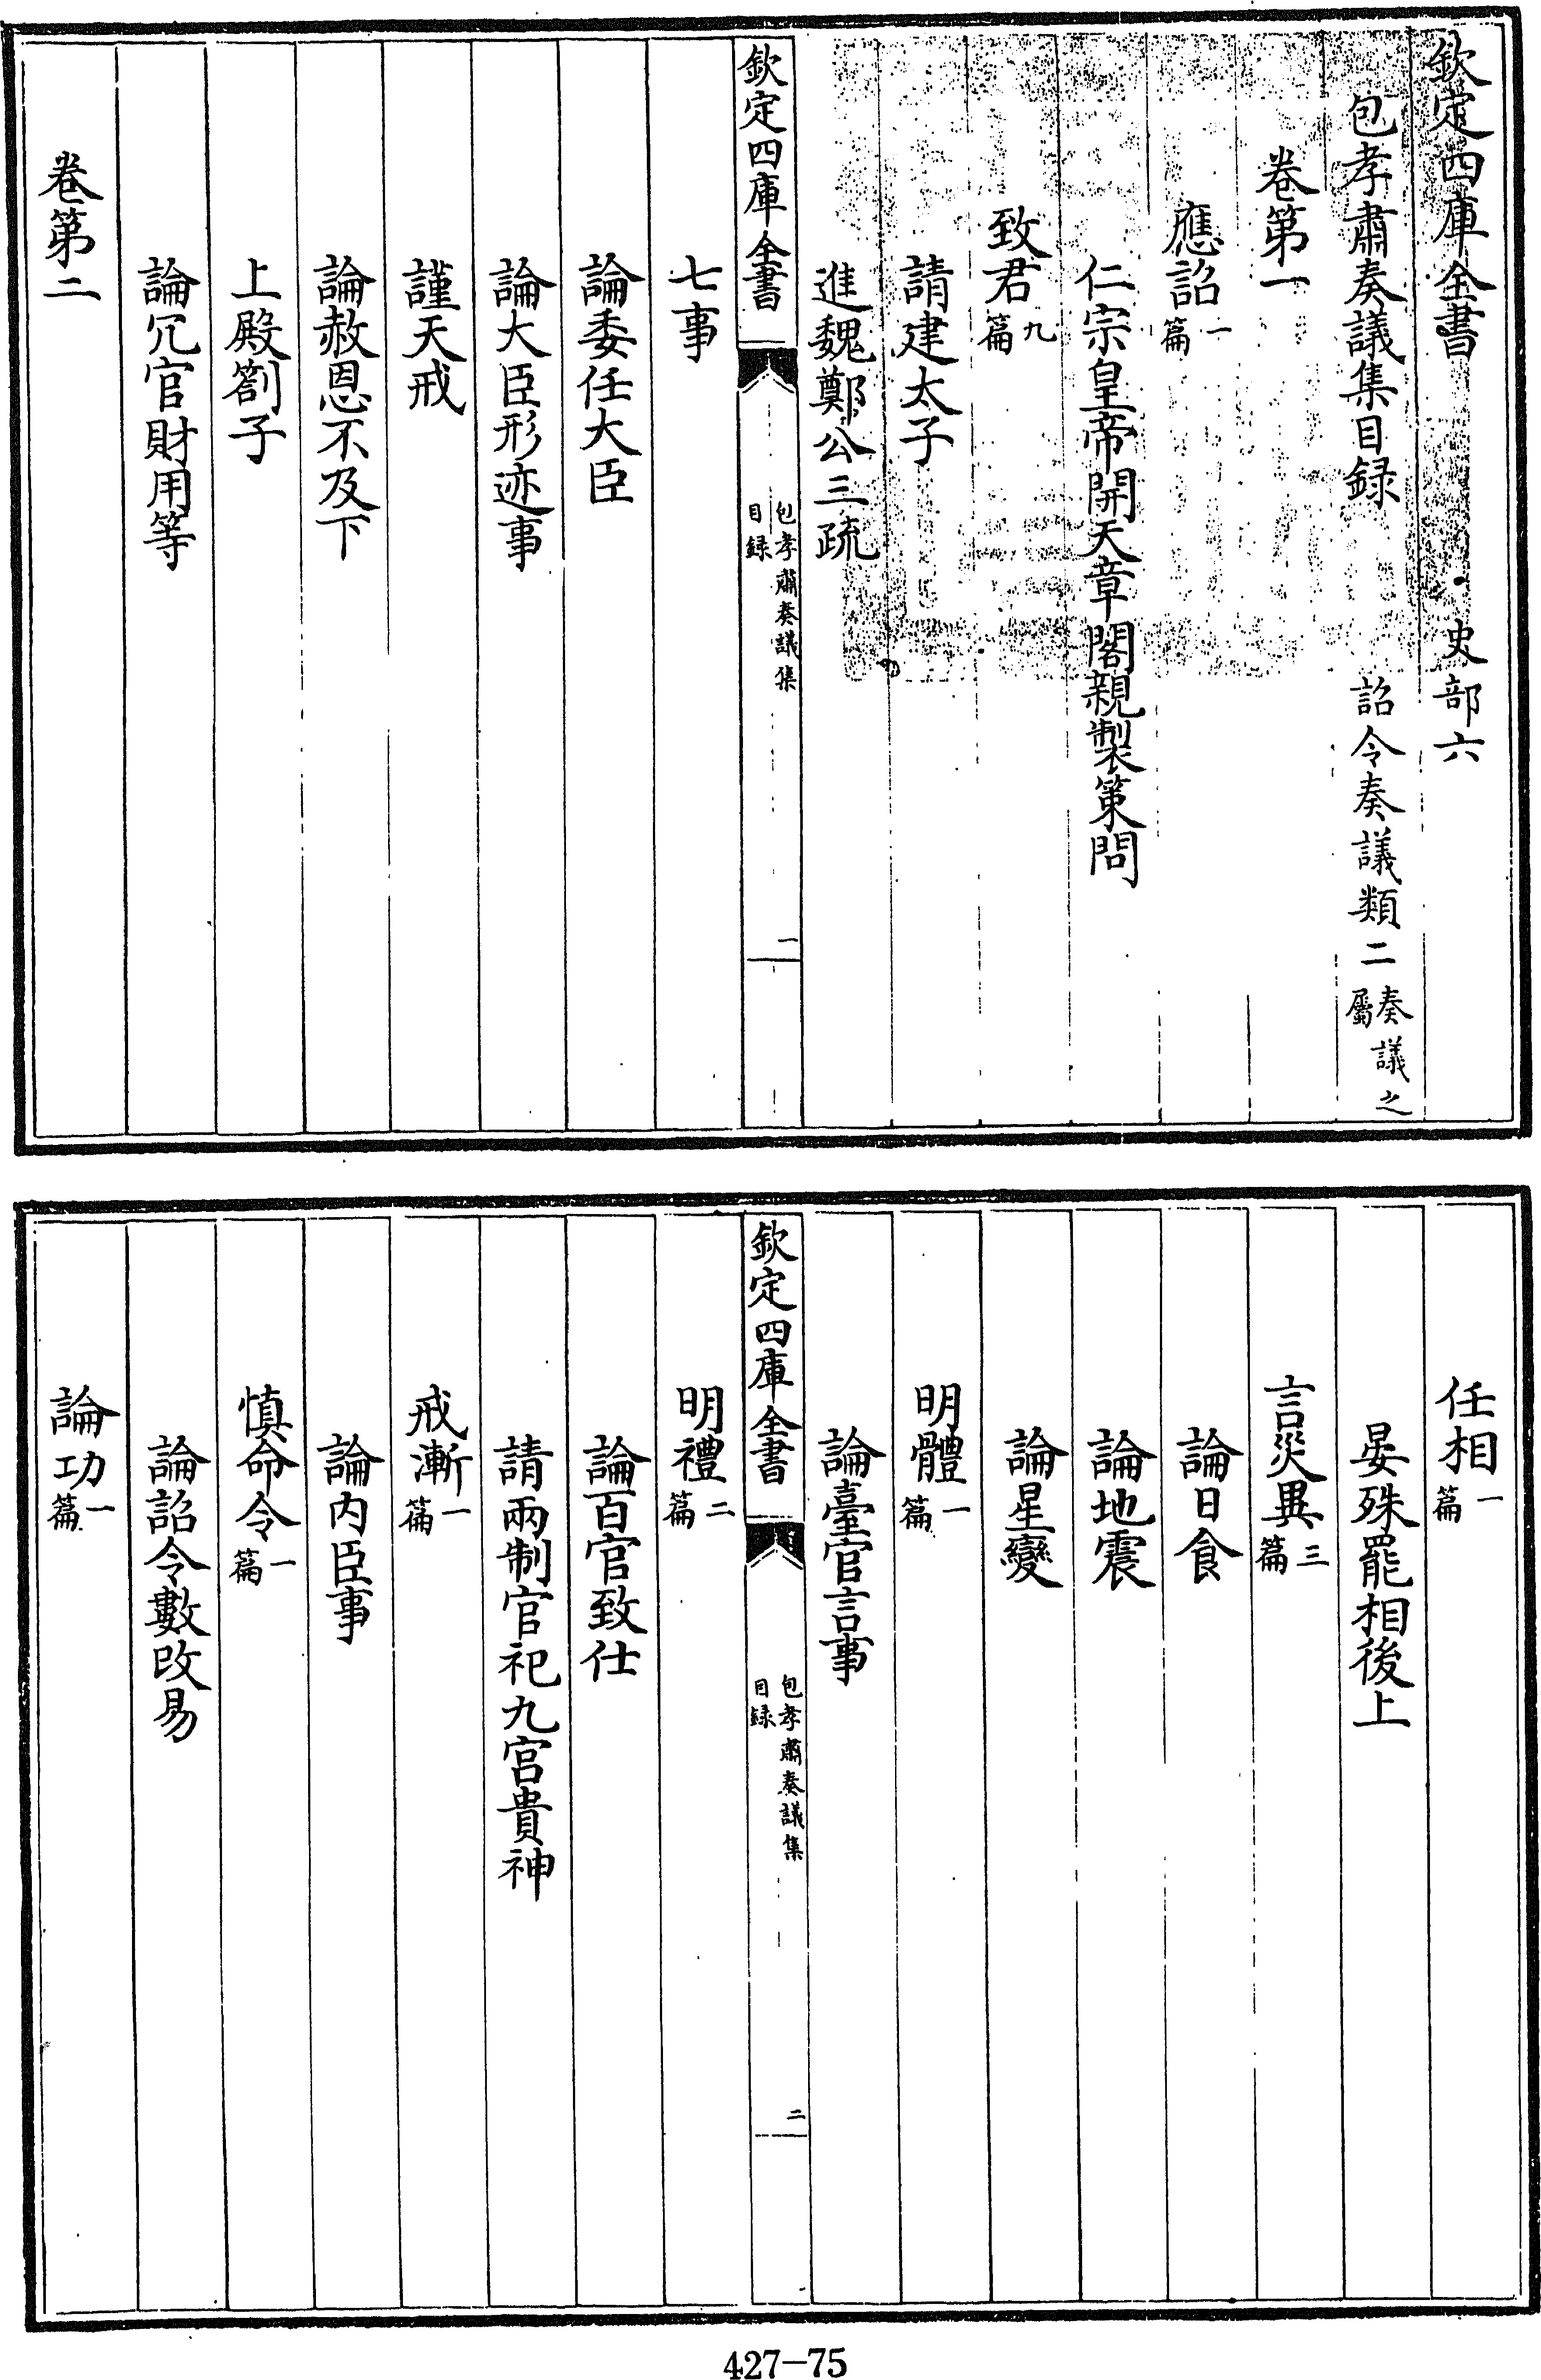 欽定四庫全書　史部六
包孝肅奏議集目録　詔令奏議類二奏議之屬
卷第一
應詔一篇
仁宗皇帝開天章閣親製策問
致君九篇
請建太子
進魏鄭公三疏
欽定四庫全書　包孝肅奏議集目録　一
七事
論委任大臣
論大臣形迹事
謹天戒
論赦恩不及下
上殿劄子
論冗官財用等
卷第二
任相一篇
晏殊罷相後上
言災異三篇
論日食
論地震
論星變
明體一篇
論臺官言事
欽定四庫全書　包孝肅奏議集目録　二
明禮二篇
論百官致仕
請兩制官祀九宫貴神
戒漸一篇
論内臣事
慎命令一篇
論詔令數改易
論功一篇
427-75